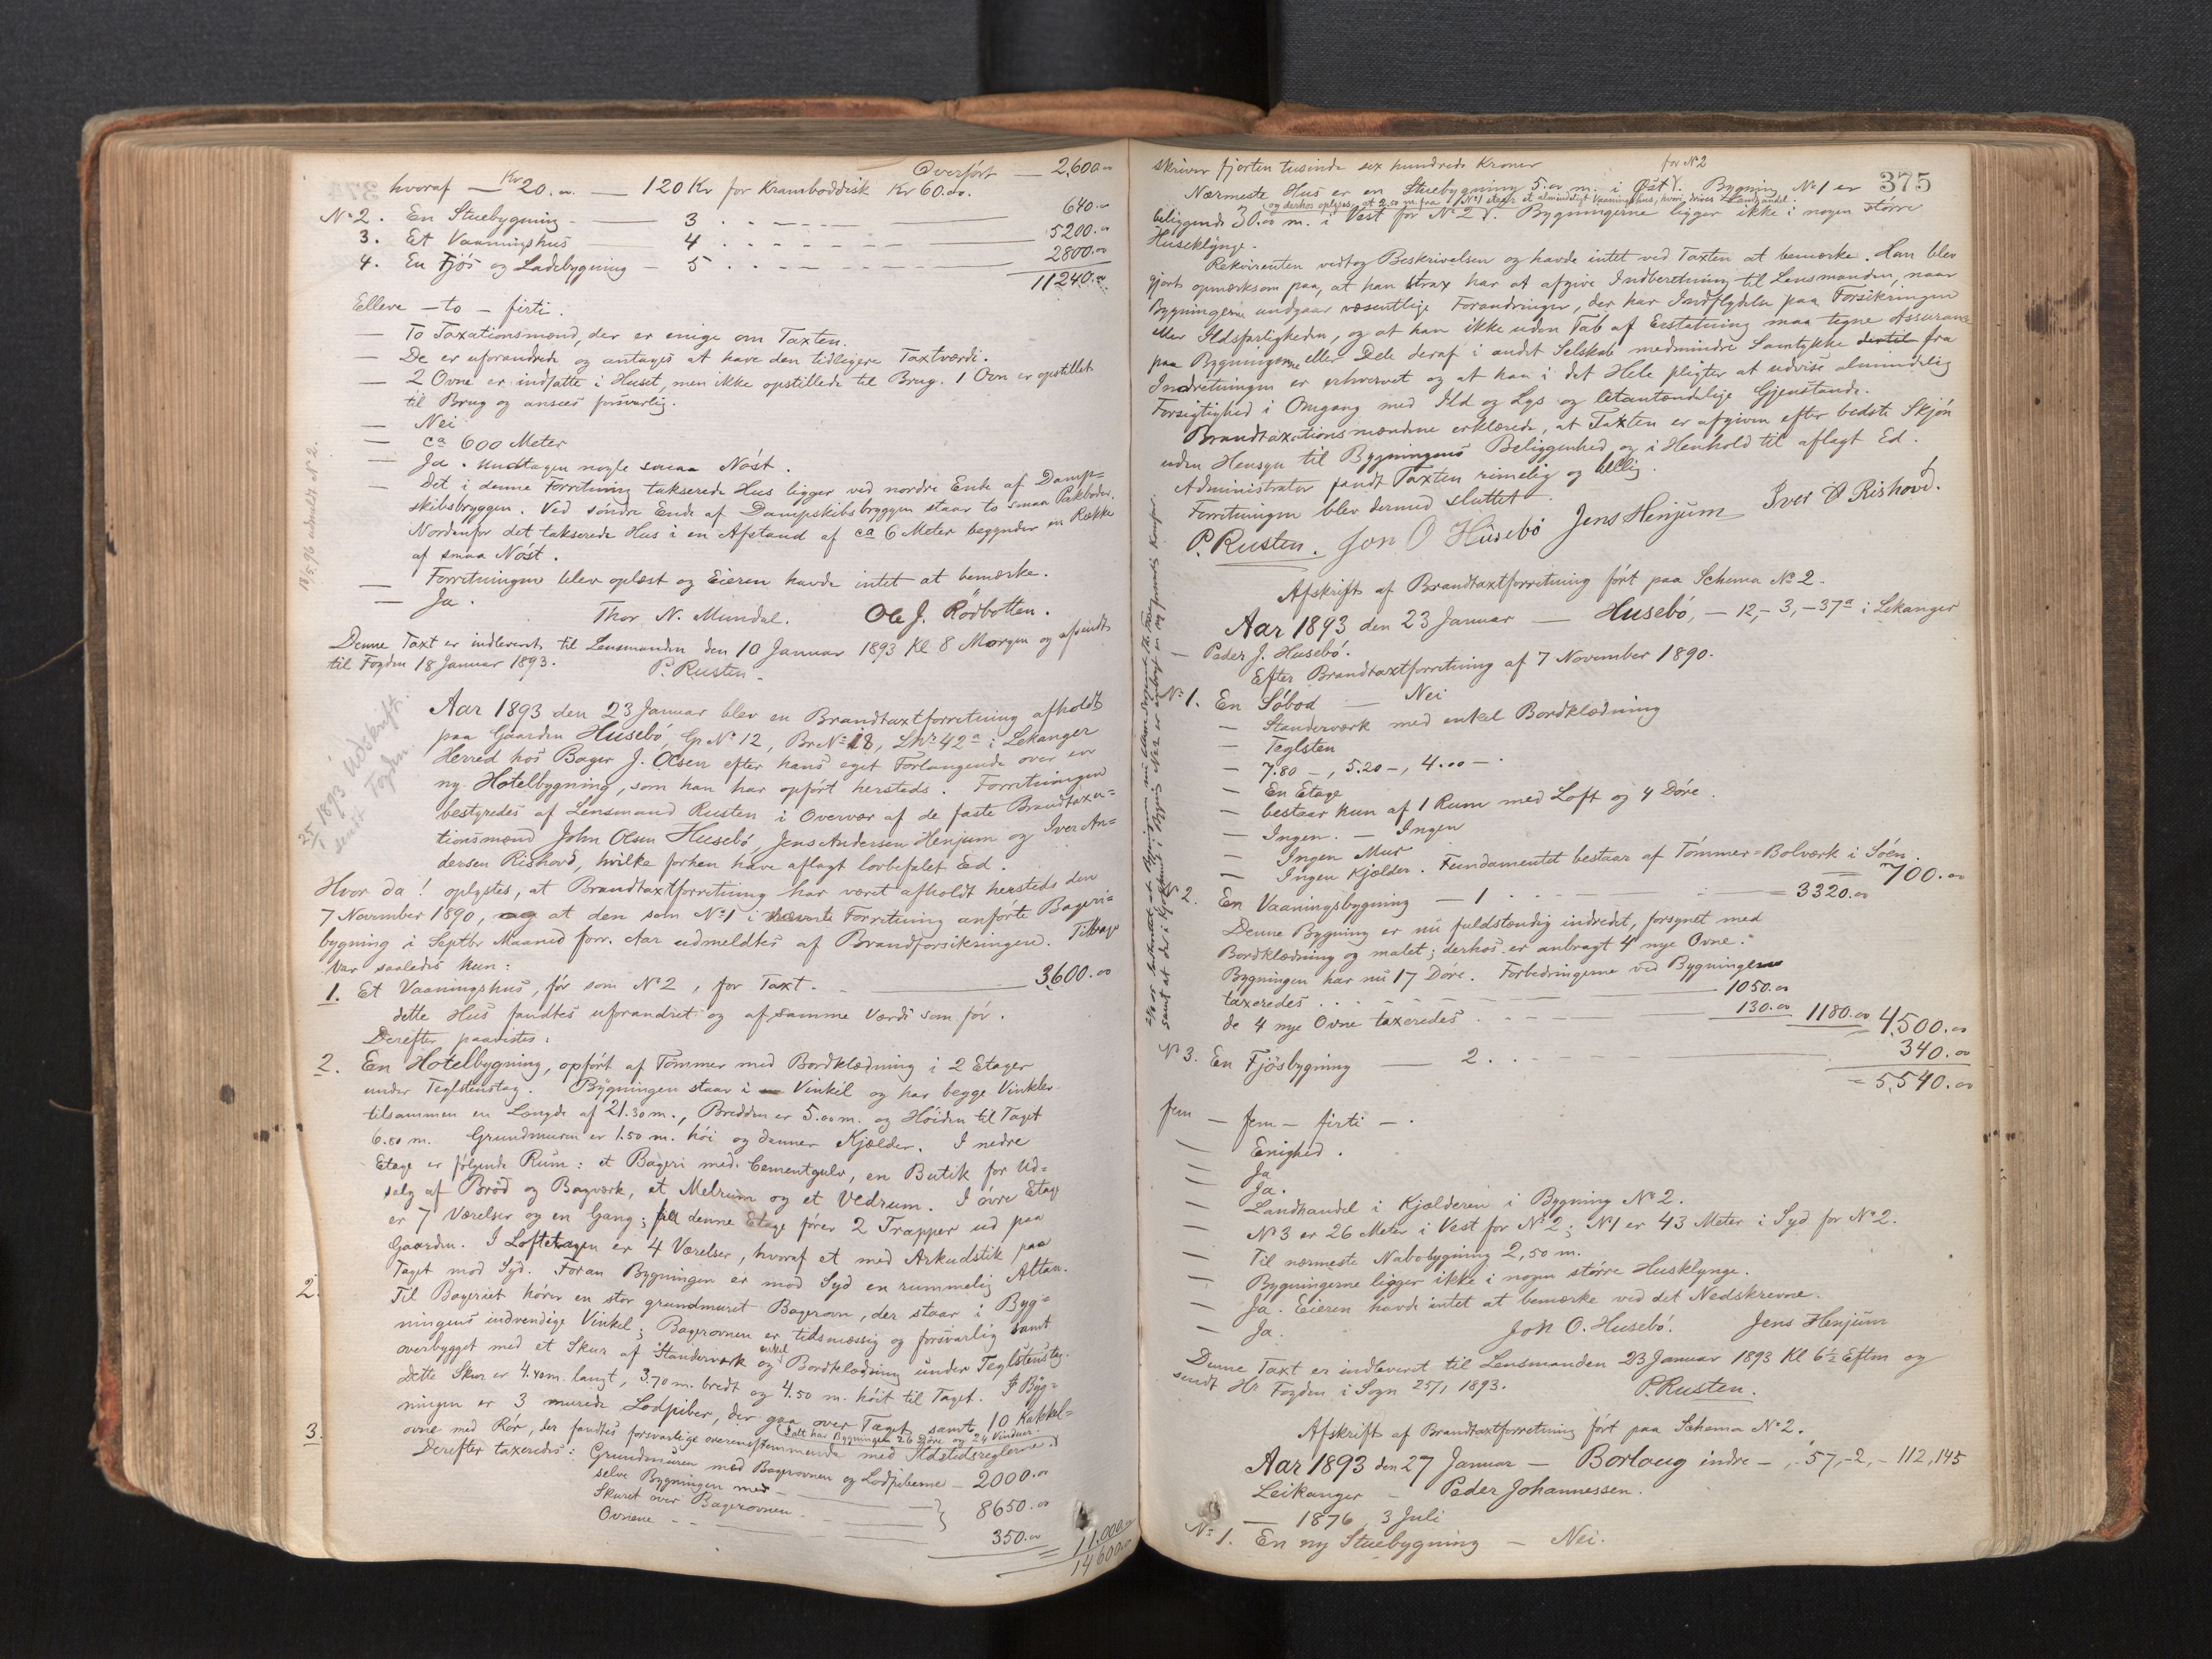 Overført — 2,600.00
hvoraf — Kr 20.00 — 120 Kr for Kramboddisk Kr 60.00.
No 2. En Stuebygning — 3 . . — 640.00
3. Et Vaaningshus — 4 . . — 5200.00
4. En Fjøs og Ladebygning — 5 . . — 2800.00
11240.00
Elleve — to — firti.
— To Taxationsmænd, der er enige om Taxten.
— De er uforandrede og antages at have den tidligere Taxtværdi.
— 2 Ovne er indsatte i Huset, men ikke opstillede til Brug. 1 Ovn er opstillet
til Brug og ansees forsvarlig.
— Nei
— ca 600 Meter
— Ja. undtagen nogle smaa Nøst.
— Det i denne Forretning takserede Hus ligger ved nordre Ende af Damp=
skibsbryggen. Ved søndre Ende af Dampskibsbryggen staar to smaa Pakboder.
Nordenfor det takserede Hus i en Afstand af ca 6 Meter begynder en Række
af smaa Nøst.
— Forretningen blev oplæst og Eieren havde intet at bemærke.
— Ja.
Thor N. Mundal. Ole J. Rødbotten.
Denne Taxt er indleveret til Lensmanden den 10 Januar 1893 Kl 8 Morgen og afsendt
til Fogden 18 Januar 1893.
P. Rusten.
25/1 1893 Udskrift
sendt Fogden
Aar 1893 den 23 Januar blev en Brandtaxtforretning afholdt
paa Gaarden Husebø, Gr No 12, Br No 18, Lnr 42a i Lekanger
Herred hos Bager J. Olsen efter hans eget Forlangende over en
ny Hotelbygning, som han har opført hersteds. Forretningen
bestyredes af Lensmand Rusten i Overvær af de faste Brandtaxa=
tionsmænd John Olsen Husebø, Jens Andersen Henjum og Iver An=
dersen Rishovd, hvilke forhen have aflagt lovbefalet Ed.
Hvor da! oplystes, at Brandtaxtforretning har været afholdt hersteds den
7 November 1890, og at den som No 1 i nævnte Forretning anførte Bageri=
bygning i Septbr Maaned forr. Aar udmeldtes af Brandforsikringen. Tilbage
var saaledes kun:
1. Et Vaaningshus, før som No 2, for Taxt. — 3600.00
dette Hus fandtes uforandret og af samme Værdi som før.
Derefter paavistes:
2. En Hotelbygning, opført af Tømmer med Bordklædning i 2 Etager
under Teglstenstag. Bygningen staar i Vinkel og har begge Vinkler
tilsammen en Længde af 21.30 m., Bredden er 5.00 m. og Høiden til Taget
6.50 m. Grundmuren er 1.50 m. høi og danner Kjælder. I nedre
Etage er følgende Rum: et Bageri med Cementgulv, en Butik for Ud=
salg af Brød og Bagværk, et Melrum og et Vedrum. I øvre Etage
er 7 Værelser og en Gang; til denne Etage fører 2 Trapper ud paa
Gaarden. I Loftetagen er 4 Værelser, hvoraf et med Arkudstik paa
Taget mod Syd. Foran Bygningen er mod Syd en rummelig Altan.
2. Til Bageriet hører en stor grundmuret Bagerovn, der staar i Byg=
ningens indvendige Vinkel; Bagerovnen er tidsmæssig og forsvarlig samt
overbygget med et Skur af Standerværk og enkel Bordklædning under Teglstenstag.
Dette Skur er 4.40 m. langt, 3.70 m. bredt og 4.50 m. høit til Taget. I Byg=
ningen er 3 murede Lodpiber, der gaa over Taget samt 10 Kakkel=
ovne med Rør, der fandtes forsvarlige overensstemmende med Ildstedsreglerne.
Ialt har Bygningen 26 Døre og 24 Vinduer.
3. Derefter taxeredes: Grundmuren med Bagerovnen og Lodpiberne — 2000.00
selve Bygningen med —
Skuret over Bagerovnen — } 8650.00
Ovnene — 350.00 = 11.000.00
14600.00
18/5 96 udmeldt No 2.
375
skriver fjorten tusinde sex hundrede Kroner
Nærmeste Hus er en Stuebygning 5.00 m. i Øst for No 2. Bygning No 1 er
og derhos oplyses, at 2.50 m fra No 1 staar et almindeligt Vaaningshus, hvori drives Landhandel.
beliggende 30.00 m. i Vest for No 2. Bygningerne ligger ikke i nogen større
Huseklynge.
Rekvirenten vedtog Beskrivelsen og havde intet ved Taxten at bemærke. Han blev
gjort opmærksom paa, at han strax har at afgive Indberetning til Lensmanden, naar
Bygningerne undgaar væsentlige Forandringer, der har Indflydelse paa Forsikringen
eller Ildsfarligheden, og at han ikke uden Tab af Erstatning maa tegne Assurance
paa Bygningerne eller Dele deraf i andet Selskab medmindre Samtykke dertil fra
Indretningen er erhvervet og at han i det Hele pligter at udvise almindelig
Forsigtighed i Omgang med Ild og Lys og letantændelige Gjenstande.
Brandtaxationsmændene erklærede, at Taxten er afgiven efter bedste Skjøn
uden Hensyn til Bygningens Beliggenhed og i Henhold til aflagt Ed.
Administrator fandt Taxten rimelig og billig.
Forretningen blev dermed sluttet.
P. Rusten. Jon O Husebø Jens Henjum Iver A Rishovd.
Afskrift af Brandtaxtforretning ført paa Schema No 2.
Aar 1893 den 23 Januar — Husebø, — 12, — 3, — 37a i Lekanger
— Peder J. Husebø.
Efter Brandtaxtforretning af 7 November 1890.
No 1. En Søbod — Nei
— Standerværk med enkel Bordklædning
— Teglsten
— 7.80 —, 5.20 —, 4.00 —.
— En Etage
— bestaar kun af 1 Rum med Loft og 4 Døre.
— Ingen. — Ingen
— Ingen Mur
— Ingen Kjælder. Fundamentet bestaar af Tømmer=Bolværk i Søen. 700.00
2. En Vaaningsbygning — 1 — = 3320.00
Denne Bygning er nu fuldstændig indredet, forsynet med
Bordklædning og malet; derhos er anbragt 4 nye Ovne.
Bygningen har nu 17 Døre. Forbedringerne ved Bygningerne
taxeredes . . . — 1050.00
de 4 nye Ovne taxeredes . . — 130.00 1180.00 = 4,500.00
No 3. En Fjøsbygning — 2. . — 340.00
= 5,540.00
fem — fem — firti — .
— Enighed.
— Ja
— Ja.
— Landhandel i Kjælderen i Bygning No 2.
— No 3 er 26 Meter i Vest for No 2; No 1 er 43 Meter i Syd for No 2.
— Til nærmeste Nabobygning 2,50 m.
— Bygningerne ligger ikke i nogen større Husklynge.
— Ja. Eieren havde intet at bemærke ved det Nedskrevne.
— Ja. Jon O. Husebø. Jens Henjum
Denne Taxt er indleveret til Lensmanden 23 Januar 1893 Kl 6½ Eftm og
sendt Hr Fogden i Sogn 25/1 1893. P. Rusten.
Afskrift af Brandtaxtforretning ført paa Schema No 2.
Aar 1893 den 27 Januar — Borlaug indre — , 57, — 2, — 112, 145
Leikanger — Peder Johannessen.
— 1876, 3 Juli
No 1. En ny Stuebygning — Nei.